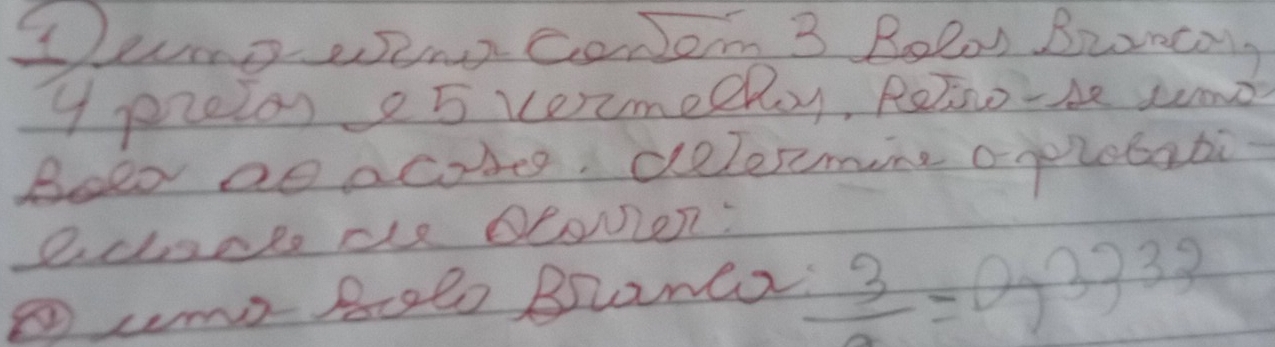 1) uma urna Contém 3 Bolas Brancas,
4 pretas e 5 vermelhas. Retira-se uma
Bola ao acaso. determine a probabi-
lidade de ocorrer:
a) uma Bola Branca: 3/ = 0,3333